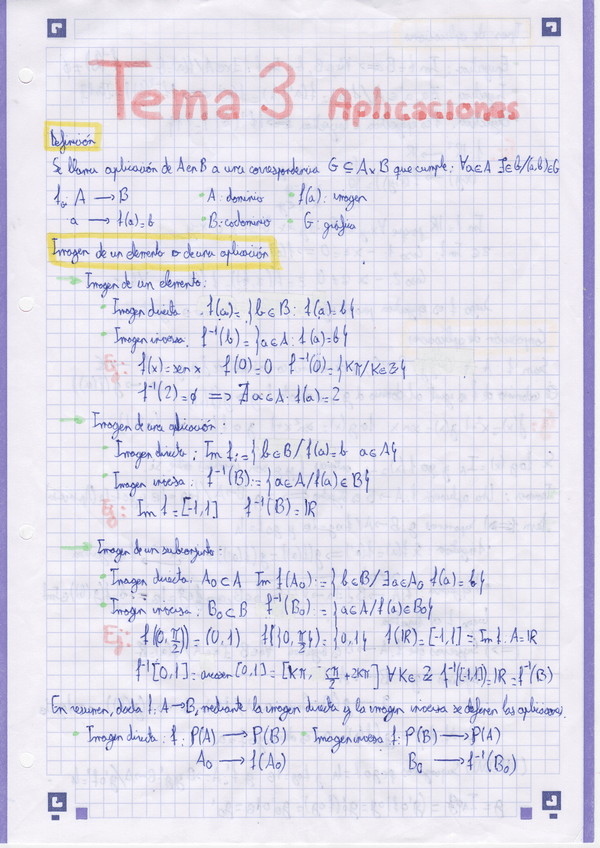 Tema 3 Aplicaciones
Definición
Se llama aplicación de A en B a una correspondencia G ⊆ A×B que cumple: ∀a∈A ∃!b∈B/(a,b)∈G
f: A → B • A: dominio • f(a): imagen
a → f(a)=b • B: codominio • G: gráfica
Imagen de un elemento o de una aplicación
→ Imagen de un elemento:
• Imagen directa f(a) = {b∈B: f(a)=b}
• Imagen inversa. f⁻¹(b) = {a∈A: f(a)=b}
Ej: f(x)=sen x f(0)=0 f⁻¹(0)={Kπ/K∈ℤ}
f⁻¹(2)=∅ => ∄a∈A: f(a)=2
→ Imagen de una aplicación:
• Imagen directa: Im f:={b∈B/f(a)=b a∈A}
• Imagen inversa: f⁻¹(B):={a∈A/f(a)∈B}
Ej: Im f=[-1,1] f⁻¹(B)=ℝ
→ Imagen de un subconjunto:
• Imagen directa: A₀⊂A Im f(A₀):={b∈B/∃a∈A₀ f(a)=b}
• Imagen inversa: B₀⊂B f⁻¹(B₀)={a∈A/f(a)∈B₀}
Ej: f((0,π/2))=(0,1) f({0,π/2})={0,1} f(ℝ)=[-1,1]=Im f. A=ℝ
f⁻¹[0,1]=arcsen[0,1]= ∀K∈ℤ f⁻¹([-1,1])=ℝ=f⁻¹(B)
En resumen, dada f: A→B, mediante la imagen directa y la imagen inversa se definen las aplicaciones.
• Imagen directa: f: P(A) → P(B) • Imagen inversa f: P(B) → P(A)
A₀ → f(A₀) B₀ → f⁻¹(B₀)